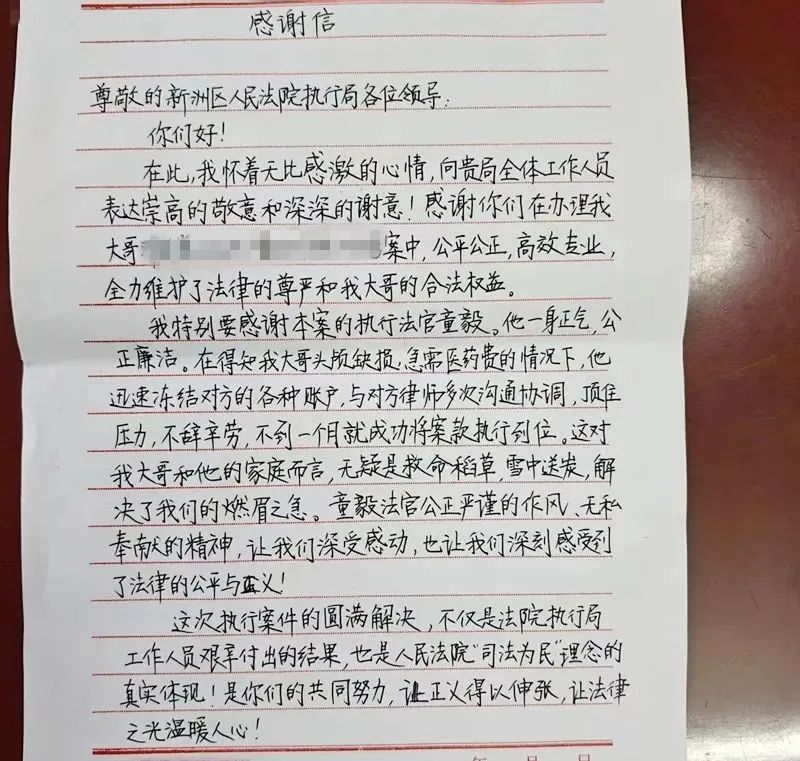 感谢信
尊敬的新洲区人民法院执行局各位领导:
你们好!
在此,我怀着无比感激的心情,向贵局全体工作人员
表达崇高的敬意和深深的谢意!感谢你们在办理我
大哥 案中,公平公正,高效专业,
全力维护了法律的尊严和我大哥的合法权益。
我特别要感谢本案的执行法官童毅。他一身正气,公
正廉洁。在得知我大哥头颅缺损、急需医药费的情况下,他
迅速冻结对方的各种账户,与对方律师多次沟通协调,顶住
压力,不辞辛劳,不到一个月就成功将案款执行到位。这对
我大哥和他的家庭而言,无疑是救命稻草,雪中送炭,解
决了我们的燃眉之急。童毅法官公正严谨的作风、无私
奉献的精神,让我们深受感动,也让我们深刻感受到
了法律的公平与正义!
这次执行案件的圆满解决,不仅是法院执行局
工作人员艰辛付出的结果,也是人民法院“司法为民”理念的
真实体现!是你们的共同努力,让正义得以伸张,让法律
之光温暖人心!
年 月 日